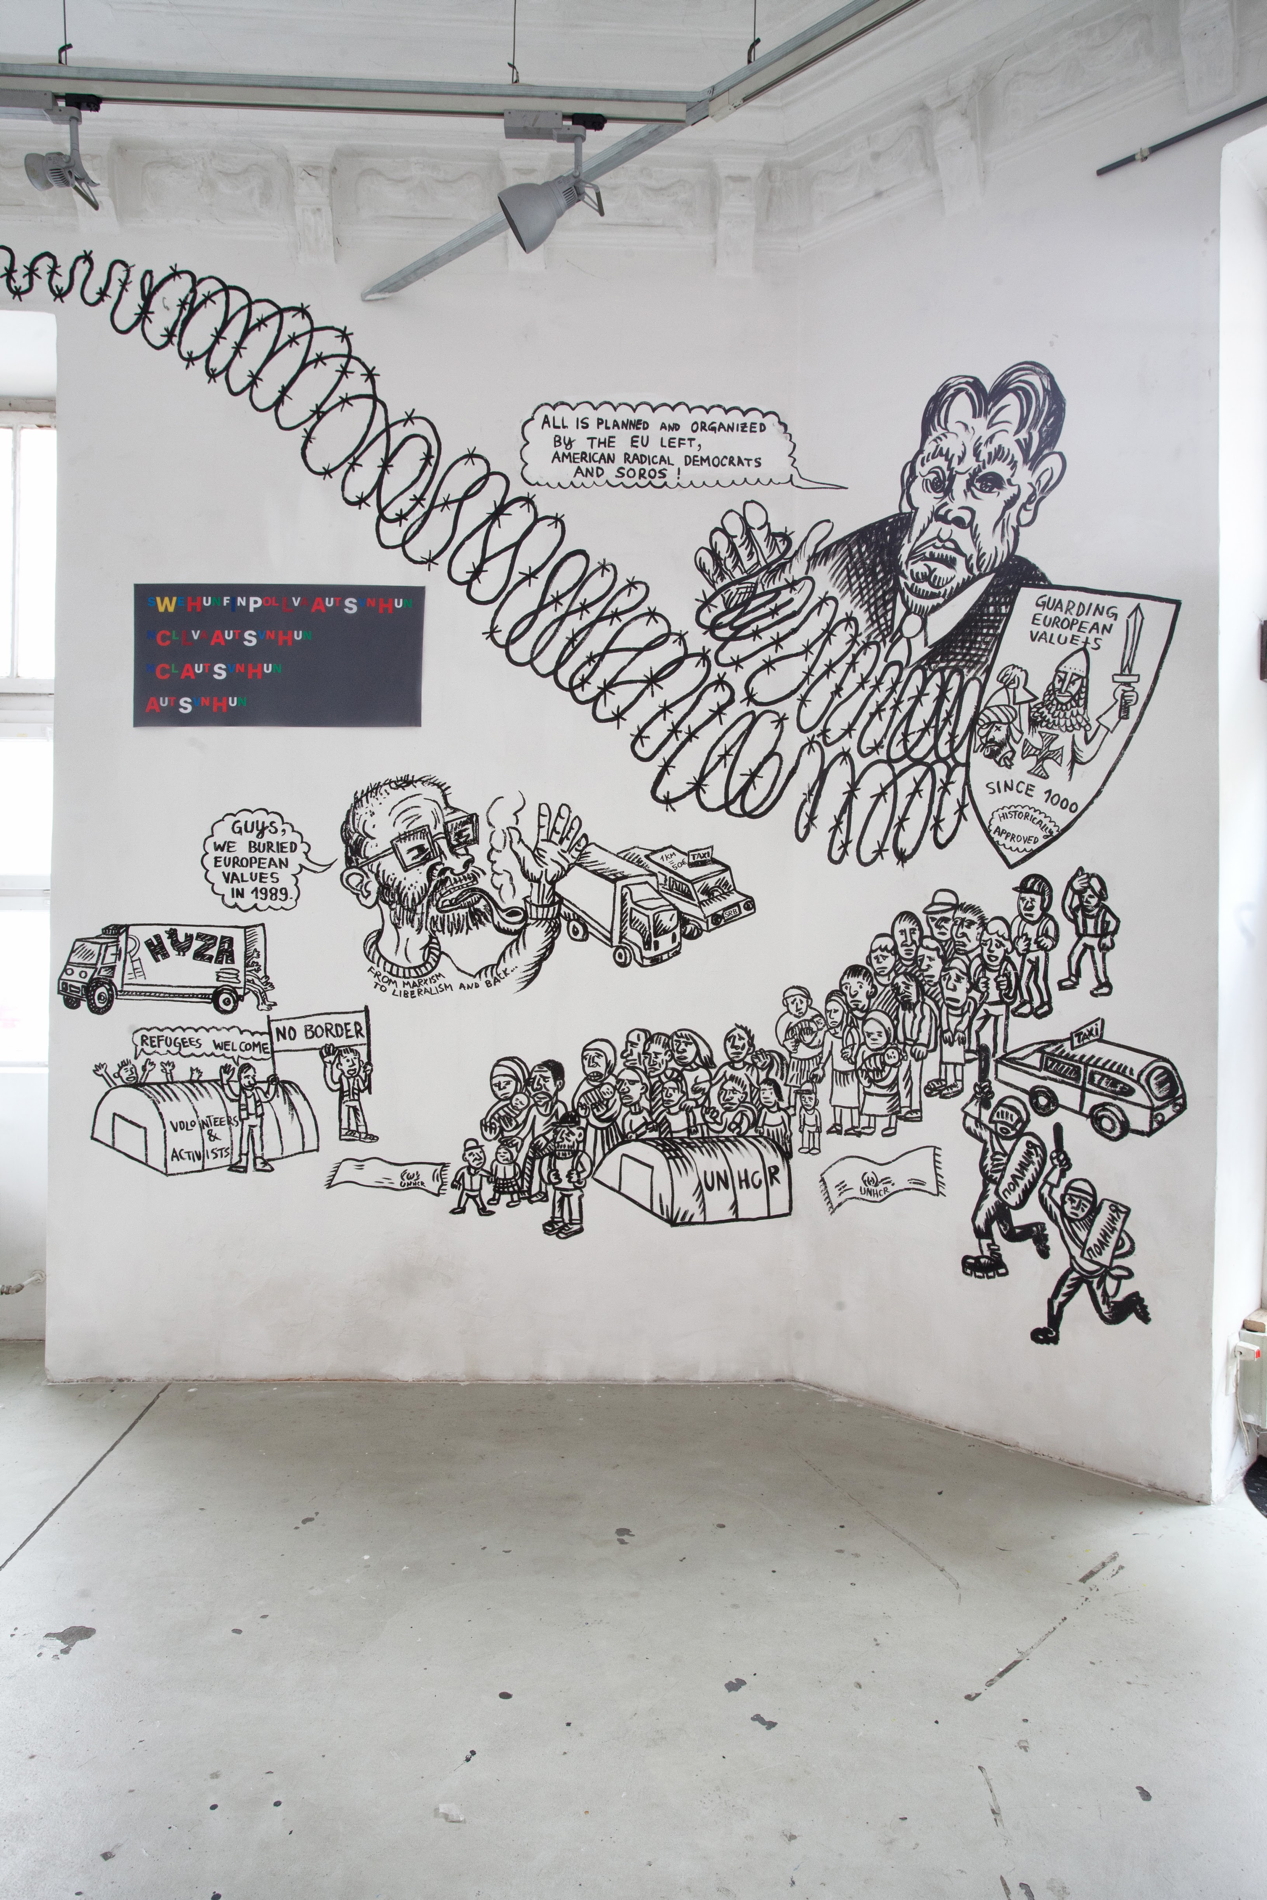 ALL IS PLANNED AND ORGANIZED
BY THE EU LEFT,
AMERICAN RADICAL DEMOCRATS
AND SOROS!
GUARDING
EUROPEAN
VALUE+S
SINCE 1000
HISTORICALLY
APPROVED
GUYS,
WE BURIED
EUROPEAN
VALUES
IN 1989.
FROM MARXISM
TO LIBERALISM AND BACK...
TAXI
HYZA
REFUGEES WELCOME
NO BORDER
VOLUNTEERS
&
ACTIVISTS
UNHCR
UNHCR
UNHCR
TAXI
ПОЛИЦИЯ
ПОЛИЦИЯ